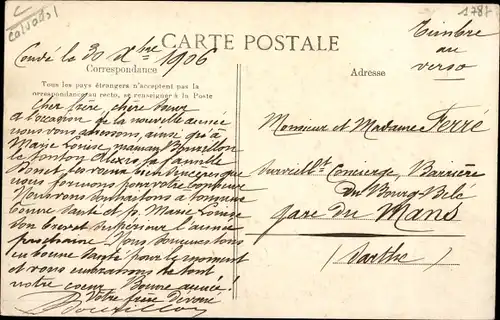 C
Calvados
1787
Timbre
au
verso
Condé le 30 Xbre 1906
CARTE POSTALE
Correspondance
Adresse
Tous les pays étrangers n'acceptent pas la
correspondance au recto, se renseigner à la Poste
Cher frère, chère sœur
à l'occasion de la nouvelle année
nous vous adressons, ainsi qu'à
Marie Louise, maman Bouvillon
le tonton Alexis, la famille
Bonet les vœux bien sincères que
nous formons pour votre bonheur
Nous vous souhaitons à tous une
bonne santé et p. Marie Louise
son brevet supérieur l'année
prochaine. Nous
en bonne santé pour le moment
et vous embrassons de tout
notre cœur. Bonne année!
Votre frère dévoué
Bouvillon
Monsieur et Madame Ferré
Surveillt Concierge, Barrière
du Bourg-Belé
gare du Mans
(Sarthe)